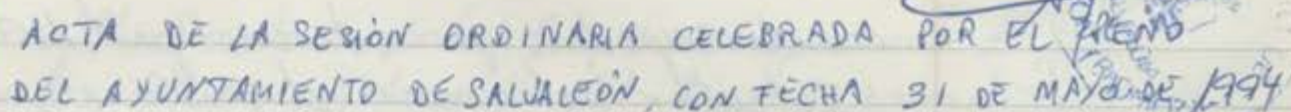 ACTA DE LA SESIÓN ORDINARIA CELEBRADA POR EL PLENO
DEL AYUNTAMIENTO DE SALVALEÓN, CON FECHA 31 DE MAYO DE 1994